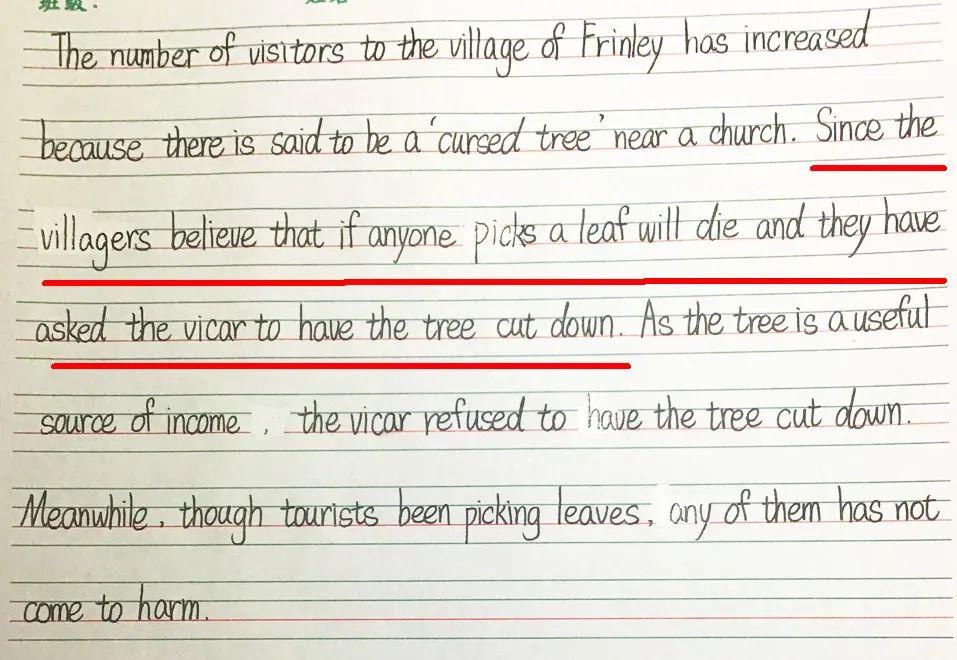 班级:
The number of visitors to the village of Frinley has increased
because there is said to be a 'cursed tree' near a church. Since the
villagers believe that if anyone picks a leaf will die and they have
asked the vicar to have the tree cut down. As the tree is a useful
source of income, the vicar refused to have the tree cut down.
Meanwhile, though tourists been picking leaves, any of them has not
come to harm.